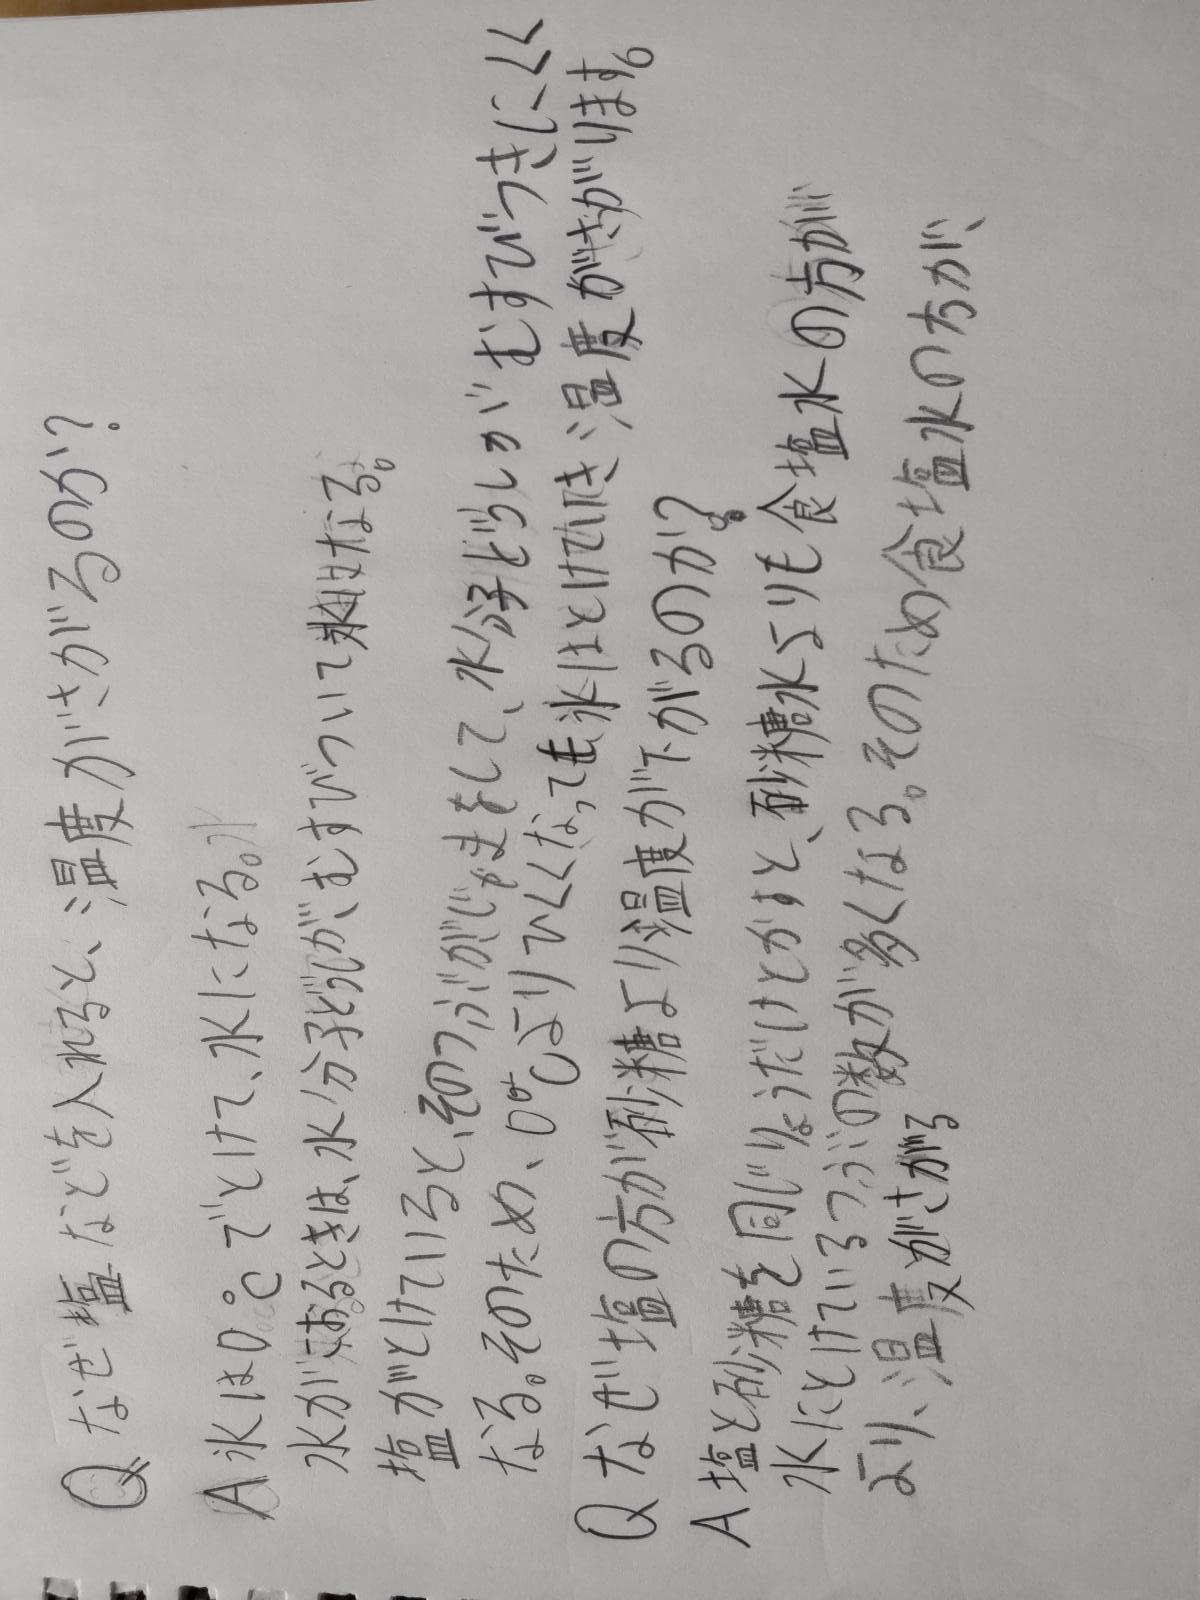 Qなぜ塩などを入れると、温度がさがるのか?
A氷は0℃でとけて、水になる。
水がこおるときは、水分子どうしが、むすびついて氷になる。
塩がとけていると、そのつぶがじゃまをして、水分子どうしがむすびつきにくく
なる。そのため、0℃よりひくくなっても氷はとけていき温度がさがります。
Qなぜ塩の方が砂糖より温度が下がるのか?
A塩と砂糖を同じりょうだけとかすと、砂糖水よりも食塩水の方が
水にとけているつぶの数が多くなる。そのため食塩水の方が、
より、温度がさがる